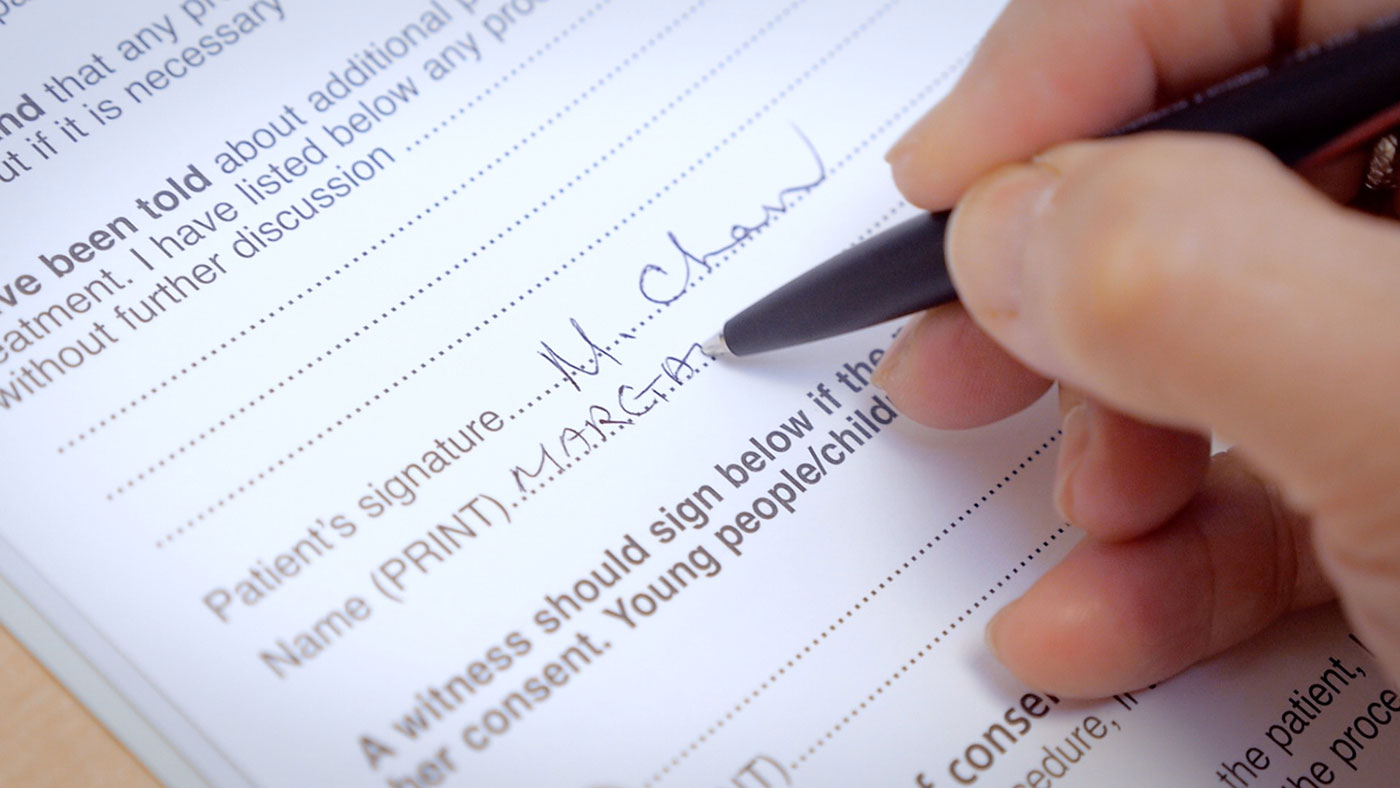 and that any pro
ut if it is necessary
ve been told about additional p
eatment. I have listed below any proc
without further discussion
Patient's signature M. Chan
Name (PRINT) MARGA
A witness should sign below if the
her consent. Young people/child
NT)
f consen
the patient, I
cedure, in
the proce